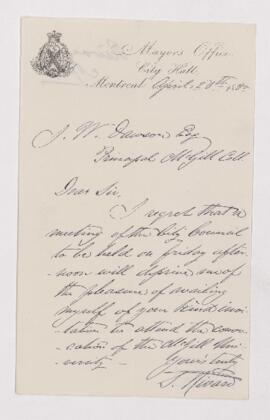 Mayor's Office
City Hall
Montreal April 28th 1880
J. W. Dawson Esq
Principal McGill Coll
Dear Sir,
I regret that a
meeting of the City Council
to be held on friday after-
noon will deprive me of
the pleasure of availing
myself of your kind invi-
tation to attend the convo-
cation of the McGill Uni-
versity -
Yours truly
S. Rivard